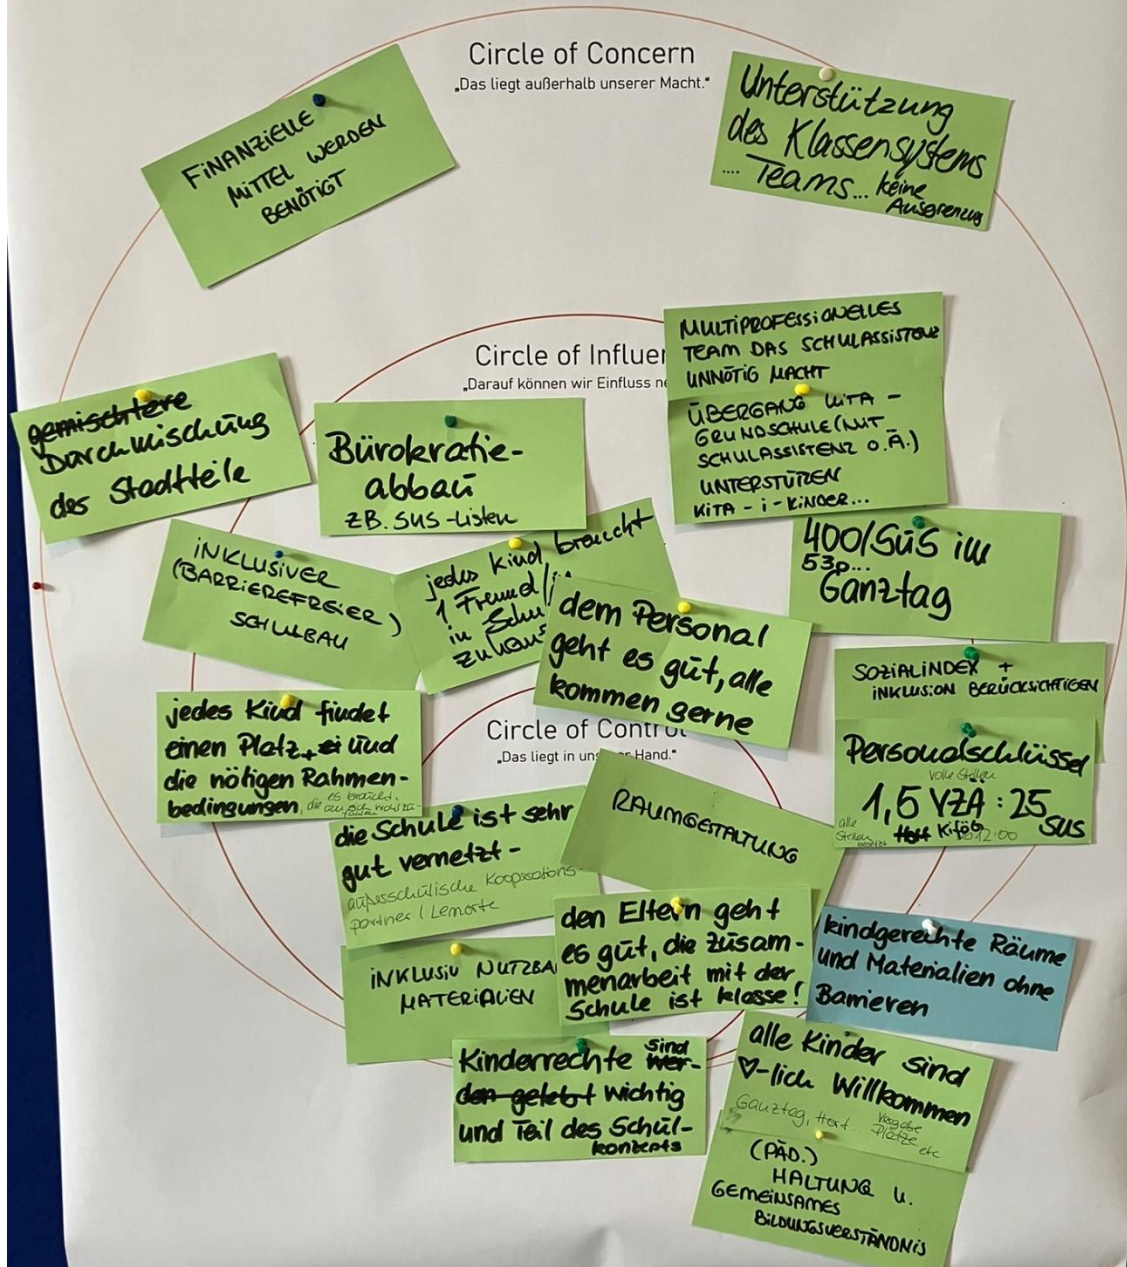 Circle of Concern
„Das liegt außerhalb unserer Macht.“
FINANZIELLE
MITTEL WERDEN
BENÖTIGT
Unterstützung
des Klassensystems
.... Teams... keine
Ausgrenzung
Circle of Influen
„Darauf können wir Einfluss ne
MULTIPROFESSIONELLES
TEAM DAS SCHULASSISTENZ
UNNÖTIG MACHT
ÜBERGANG KITA -
GRUNDSCHULE (MIT
SCHULASSISTENZ O.Ä.)
UNTERSTÜTZEN
KITA - i - KINDER...
gemischtere
Durchmischung
der Stadtteile
Bürokratie-
abbau
ZB. SUS - Listen
INKLUSIVER
(BARRIEREFREIER)
SCHULBAU
jedes Kind braucht
1 Freund/i
in Schu
zuhaus
dem Personal
geht es gut, alle
kommen gerne
400/SuS im
53p...
Ganztag
SOZIALINDEX +
INKLUSION BERÜCKSICHTIGEN
Personalschlüssel
volle Stellen
1,5 VZÄ : 25
SUS
alle
Stellen
besetzt
Hort Kiföb
12:00
jedes Kind findet
einen Platz, ei und
die nötigen Rahmen-
bedingungen, die es braucht,
um sich wohlzu-
fühlen
Circle of Control
„Das liegt in uns er Hand.“
RAUMGESTALTUNG
die Schule ist sehr
gut vernetzt -
außerschulische Kooperations-
partner / Lernorte
INKLUSIV NUTZBA
MATERIALIEN
den Eltern geht
es gut, die Zusam-
menarbeit mit der
Schule ist klasse!
kindgerechte Räume
und Materialien ohne
Barrieren
Kinderrechte sind
wer-
den gelebt wichtig
und Teil des Schul-
konzepts
alle Kinder sind
♡-lich Willkommen
Ganztag, Hort... Vergabe
Plätze
etc
(PÄD.)
HALTUNG U.
GEMEINSAMES
BILDUNGSVERSTÄNDNIS